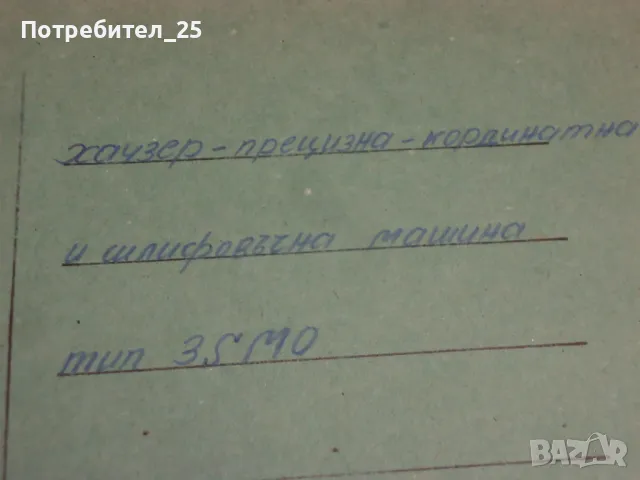 Потребител_25
хаузер - прецизна - кординатна
и шлифовъчна машина
тип 3SMO
BAZAR